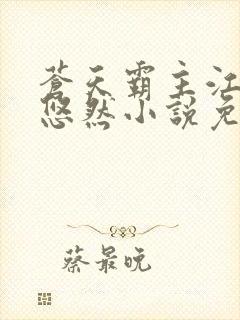 蒼天霸主江
悠然小說免
蔡最晚